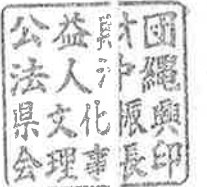 公益財団
法人沖縄
県文化振興
会理事長印